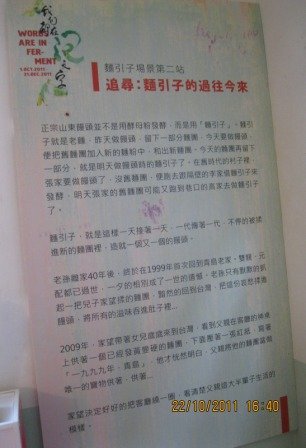 WORDS
ARE IN
FER-
MENT
1.OCT.2011
31.DEC.2011
麵引子場景第二站
追尋：麵引子的過往今來
正宗山東饅頭並不是用酵母粉發酵，而是用「麵引子」。麵引
子就是老麵，昨天做饅頭，留下一部分麵團，今天要做饅頭，
便把舊麵團加入新的麵粉中，和出新麵團，今天的麵團再留下
一部分，就是明天做饅頭時的麵引子了。在舊時代的村子裡，
張家要做饅頭了，沒舊麵團，便跑去跟隔壁的李家借麵引子來
發酵，明天張家的舊麵團可能又跑到巷口的高家去做麵引子
了。
麵引子，就是這樣一天接著一天，一代傳著一代，不停的被揉
進新的麵團裡，造就一個又一個的饅頭。
老孫離家40年後，終於在1999年首次回到青島老家，雙親、元
配都已過世，一夕的相別成了一世的遺憾。老孫只有默默的抓
起一把兒子家望揉的麵團，黯然的回到台灣，把這份哀愁揉進
饅頭，將所有的滋味吞進肚子裡...
2009年，家望帶著女兒
上供著一個已經發黃變硬的麵團，下壹壓著一張紅紙，寫著
「一九九九年，青島」，他才恍然明白，父親將他的麵團當做
唯一的寶物供著、供著...
家望決定好好的把客廳繞一圈，看清楚父親這大半輩子生活的
模樣。
22/10/2011 16:40